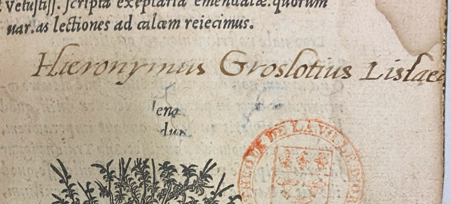 vetustiss. scripta exẽplaria emendatæ. quorum
uar.as lectiones ad calcem reiecimus.
Hieronymus Groslotius Lislæu
THEQUE DE LA VILLE D'OR